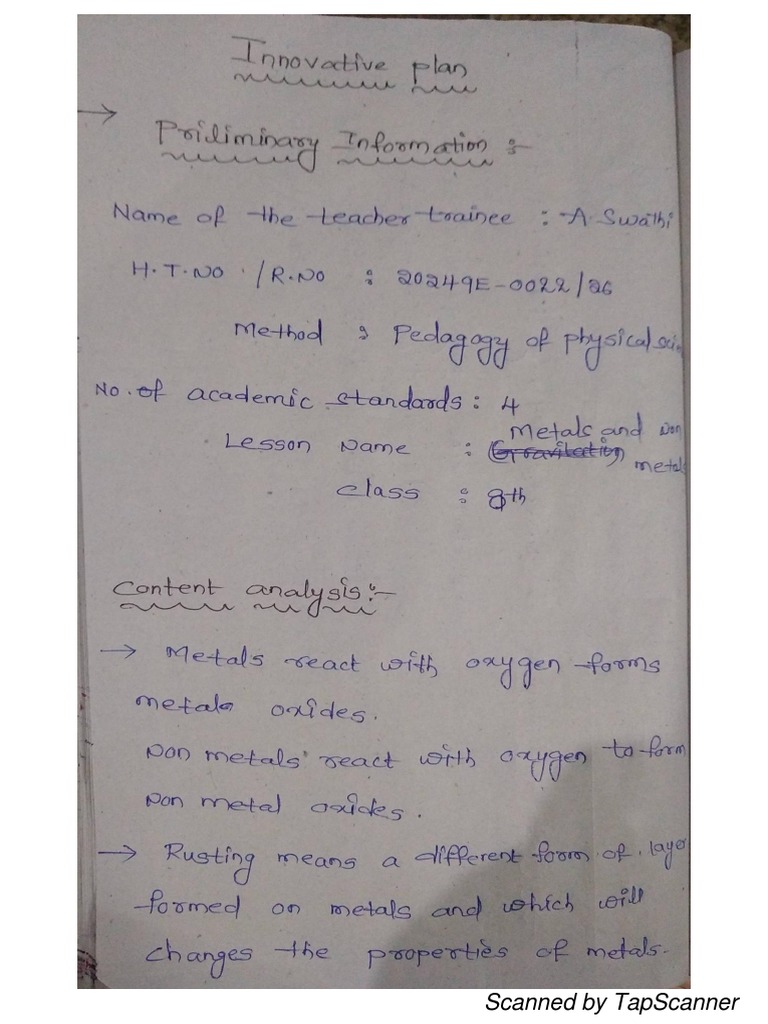 Innovative plan
→
Priliminary Information :-
Name of the teacher trainee : A. Swathi
H.T.NO / R.NO : 20249E-0022/26
Method : Pedagogy of physical scin
No. of academic standards : 4
Metals and Non
Lesson Name : Gravitation metals
Class : 8th
Content analysis :-
→ Metals react with oxygen forms
metals oxides.
Non metals react with oxygen to form
Non metal oxides.
→ Rusting means a different form of layer
formed on metals and which will
changes the properties of metals.
Scanned by TapScanner